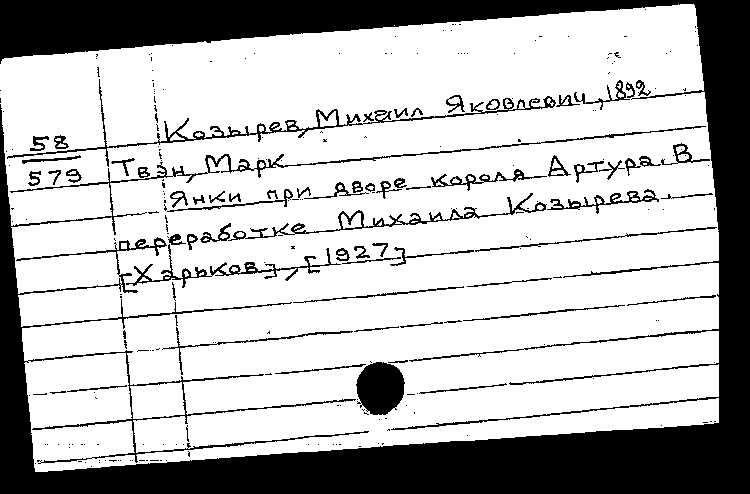 Козырев, Михаил Яковлевич, 1892
58
579
Твэн, Марк
Янки при дворе короля Артура. В
переработке Михаила Козырева.
[Харьков], [1927]